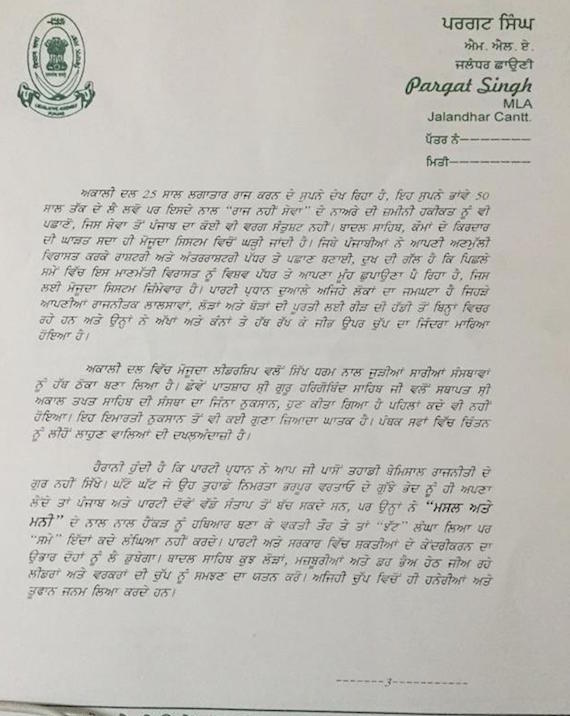 ਪਰਗਟ ਸਿੰਘ
ਐਮ. ਐਲ. ਏ.
ਜਲੰਧਰ ਛਾਉਣੀ
Pargat Singh
MLA
Jalandhar Cantt.
ਪੱਤਰ ਨੰ-------
ਮਿਤੀ--------
LEGISLATIVE ASSEMBLY
PUNJAB
ਅਕਾਲੀ ਦਲ 25 ਸਾਲ ਲਗਾਤਾਰ ਰਾਜ ਕਰਨ ਦੇ ਸੁਪਨੇ ਦੇਖ ਰਿਹਾ ਹੈ, ਇਹ ਸੁਪਨੇ ਭਾਂਵੇ 50
ਸਾਲ ਤੱਕ ਦੇ ਲੈ ਲਵੋ ਪਰ ਇਸਦੇ ਨਾਲ "ਰਾਜ ਨਹੀਂ ਸੇਵਾ" ਦੇ ਨਾਅਰੇ ਦੀ ਜ਼ਮੀਨੀ ਹਕੀਕਤ ਨੂੰ ਵੀ
ਪਛਾਣੋ, ਜਿਸ ਸੇਵਾ ਤੋਂ ਪੰਜਾਬ ਦਾ ਕੋਈ ਵੀ ਵਰਗ ਸੰਤੁਸ਼ਟ ਨਹੀਂ। ਬਾਦਲ ਸਾਹਿਬ, ਕੌਮਾਂ ਦੇ ਕਿਰਦਾਰ
ਦੀ ਘਾੜਤ ਸਦਾ ਹੀ ਮੌਜੂਦਾ ਸਿਸਟਮ ਵਿਚੋਂ ਘੜੀ ਜਾਂਦੀ ਹੈ। ਜਿਥੇ ਪੰਜਾਬੀਆਂ ਨੇ ਆਪਣੀ ਅਣਮੁੱਲੀ
ਵਿਰਾਸਤ ਕਰਕੇ ਰਾਸ਼ਟਰੀ ਅਤੇ ਅੰਤਰਰਾਸ਼ਟਰੀ ਪੱਧਰ ਤੇ ਪਛਾਣ ਬਣਾਈ, ਦੁਖ ਦੀ ਗੱਲ ਹੈ ਕਿ ਪਿਛਲੇ
ਸਮੇਂ ਵਿੱਚ ਇਸ ਮਾਣਮੱਤੀ ਵਿਰਾਸਤ ਨੂੰ ਵਿਸ਼ਵ ਪੱਧਰ ਤੇ ਆਪਣਾ ਮੂੰਹ ਛੁਪਾਉਣਾ ਪੈ ਰਿਹਾ ਹੈ, ਜਿਸ
ਲਈ ਮੌਜੂਦਾ ਸਿਸਟਮ ਜ਼ਿੰਮੇਵਾਰ ਹੈ। ਪਾਰਟੀ ਪ੍ਰਧਾਨ ਦੁਆਲੇ ਅਜਿਹੇ ਲੋਕਾਂ ਦਾ ਜਮਘਟਾ ਹੈ ਜਿਹੜੇ
ਆਪਣੀਆਂ ਰਾਜਨੀਤਕ ਲਾਲਸਾਵਾਂ, ਲੋੜਾਂ ਅਤੇ ਥੋੜਾਂ ਦੀ ਪੂਰਤੀ ਲਈ ਰੀੜ ਦੀ ਹੱਡੀ ਤੋਂ ਬਿਨ੍ਹਾਂ ਵਿਚਰ
ਰਹੇ ਹਨ ਅਤੇ ਉਨ੍ਹਾਂ ਨੇ ਅੱਖਾਂ ਅਤੇ ਕੰਨਾਂ ਤੇ ਹੱਥ ਰੱਖ ਕੇ ਜੀਭ ਉਪਰ ਚੁੱਪ ਦਾ ਜਿੰਦਰਾ ਮਾਰਿਆ
ਹੋਇਆ ਹੈ।
ਅਕਾਲੀ ਦਲ ਵਿੱਚ ਮੌਜੂਦਾ ਲੀਡਰਸ਼ਿਪ ਵਲੋਂ ਸਿੱਖ ਧਰਮ ਨਾਲ ਜੁੜੀਆਂ ਸਾਰੀਆਂ ਸੰਸਥਾਵਾਂ
ਨੂੰ ਹੱਥ ਠੋਕਾ ਬਣਾ ਲਿਆ ਹੈ। ਛੇਵੇਂ ਪਾਤਸ਼ਾਹ ਸ੍ਰੀ ਗੁਰੂ ਹਰਿਗੋਬਿੰਦ ਸਾਹਿਬ ਜੀ ਵਲੋਂ ਸਥਾਪਤ ਸ੍ਰੀ
ਅਕਾਲ ਤਖਤ ਸਾਹਿਬ ਦੀ ਸੰਸਥਾ ਦਾ ਜਿੰਨਾ ਨੁਕਸਾਨ, ਹੁਣ ਕੀਤਾ ਗਿਆ ਹੈ ਪਹਿਲਾਂ ਕਦੇ ਵੀ ਨਹੀਂ
ਹੋਇਆ। ਇਹ ਇਮਾਰਤੀ ਨੁਕਸਾਨ ਤੋਂ ਵੀ ਕਈ ਗੁਣਾ ਜ਼ਿਆਦਾ ਘਾਤਕ ਹੈ। ਪੰਥਕ ਸਫਾਂ ਵਿੱਚ ਚਿੰਤਨ
ਨੂੰ ਲੀਹੋਂ ਲਾਹੁਣ ਵਾਲਿਆਂ ਦੀ ਦਖਲਅੰਦਾਜ਼ੀ ਹੈ।
ਹੈਰਾਨੀ ਹੁੰਦੀ ਹੈ ਕਿ ਪਾਰਟੀ ਪ੍ਰਧਾਨ ਨੇ ਆਪ ਜੀ ਪਾਸੋਂ ਤੁਹਾਡੀ ਬੇਮਿਸਾਲ ਰਾਜਨੀਤੀ ਦੇ
ਗੁਰ ਨਹੀਂ ਸਿੱਖੇ। ਘੱਟੋ ਘੱਟ ਜੇ ਉਹ ਤੁਹਾਡੇ ਨਿਮਰਤਾ ਭਰਪੂਰ ਵਰਤਾਓ ਦੇ ਗੁੱਝੇ ਭੇਦ ਨੂੰ ਹੀ ਅਪਣਾ
ਲੈਂਦੇ ਤਾਂ ਪੰਜਾਬ ਅਤੇ ਪਾਰਟੀ ਦੋਵੇਂ ਵੱਡੇ ਸੰਤਾਪ ਤੋਂ ਬੱਚ ਸਕਦੇ ਸਨ, ਪਰ ਉਨ੍ਹਾਂ ਨੇ "ਮਸਲ ਅਤੇ
ਮਨੀ" ਦੇ ਨਾਲ ਨਾਲ ਹੈਂਕੜ ਨੂੰ ਹਥਿਆਰ ਬਣਾ ਕੇ ਵਕਤੀ ਤੌਰ ਤੇ ਤਾਂ "ਝੱਟ" ਲੰਘਾ ਲਿਆ ਪਰ
"ਸਮੇਂ" ਇੱਦਾਂ ਕਦੇ ਲੰਘਿਆ ਨਹੀਂ ਕਰਦੇ। ਪਾਰਟੀ ਅਤੇ ਸਰਕਾਰ ਵਿੱਚ ਸ਼ਕਤੀਆਂ ਦੇ ਕੇਂਦਰੀਕਰਨ ਦਾ
ਉਭਾਰ ਦੋਹਾਂ ਨੂੰ ਲੈ ਡੁਬੇਗਾ। ਬਾਦਲ ਸਾਹਿਬ ਕੁਝ ਲੋੜਾਂ, ਮਜ਼ਬੂਰੀਆਂ ਅਤੇ ਡਰ ਭੈਅ ਹੇਠ ਜੀਅ ਰਹੇ
ਲੀਡਰਾਂ ਅਤੇ ਵਰਕਰਾਂ ਦੀ ਚੁੱਪ ਨੂੰ ਸਮਝਣ ਦਾ ਯਤਨ ਕਰੋ। ਅਜਿਹੀ ਚੁੱਪ ਵਿਚੋਂ ਹੀ ਹਨੇਰੀਆਂ ਅਤੇ
ਤੂਫਾਨ ਜਨਮ ਲਿਆ ਕਰਦੇ ਹਨ।
-------3-----------